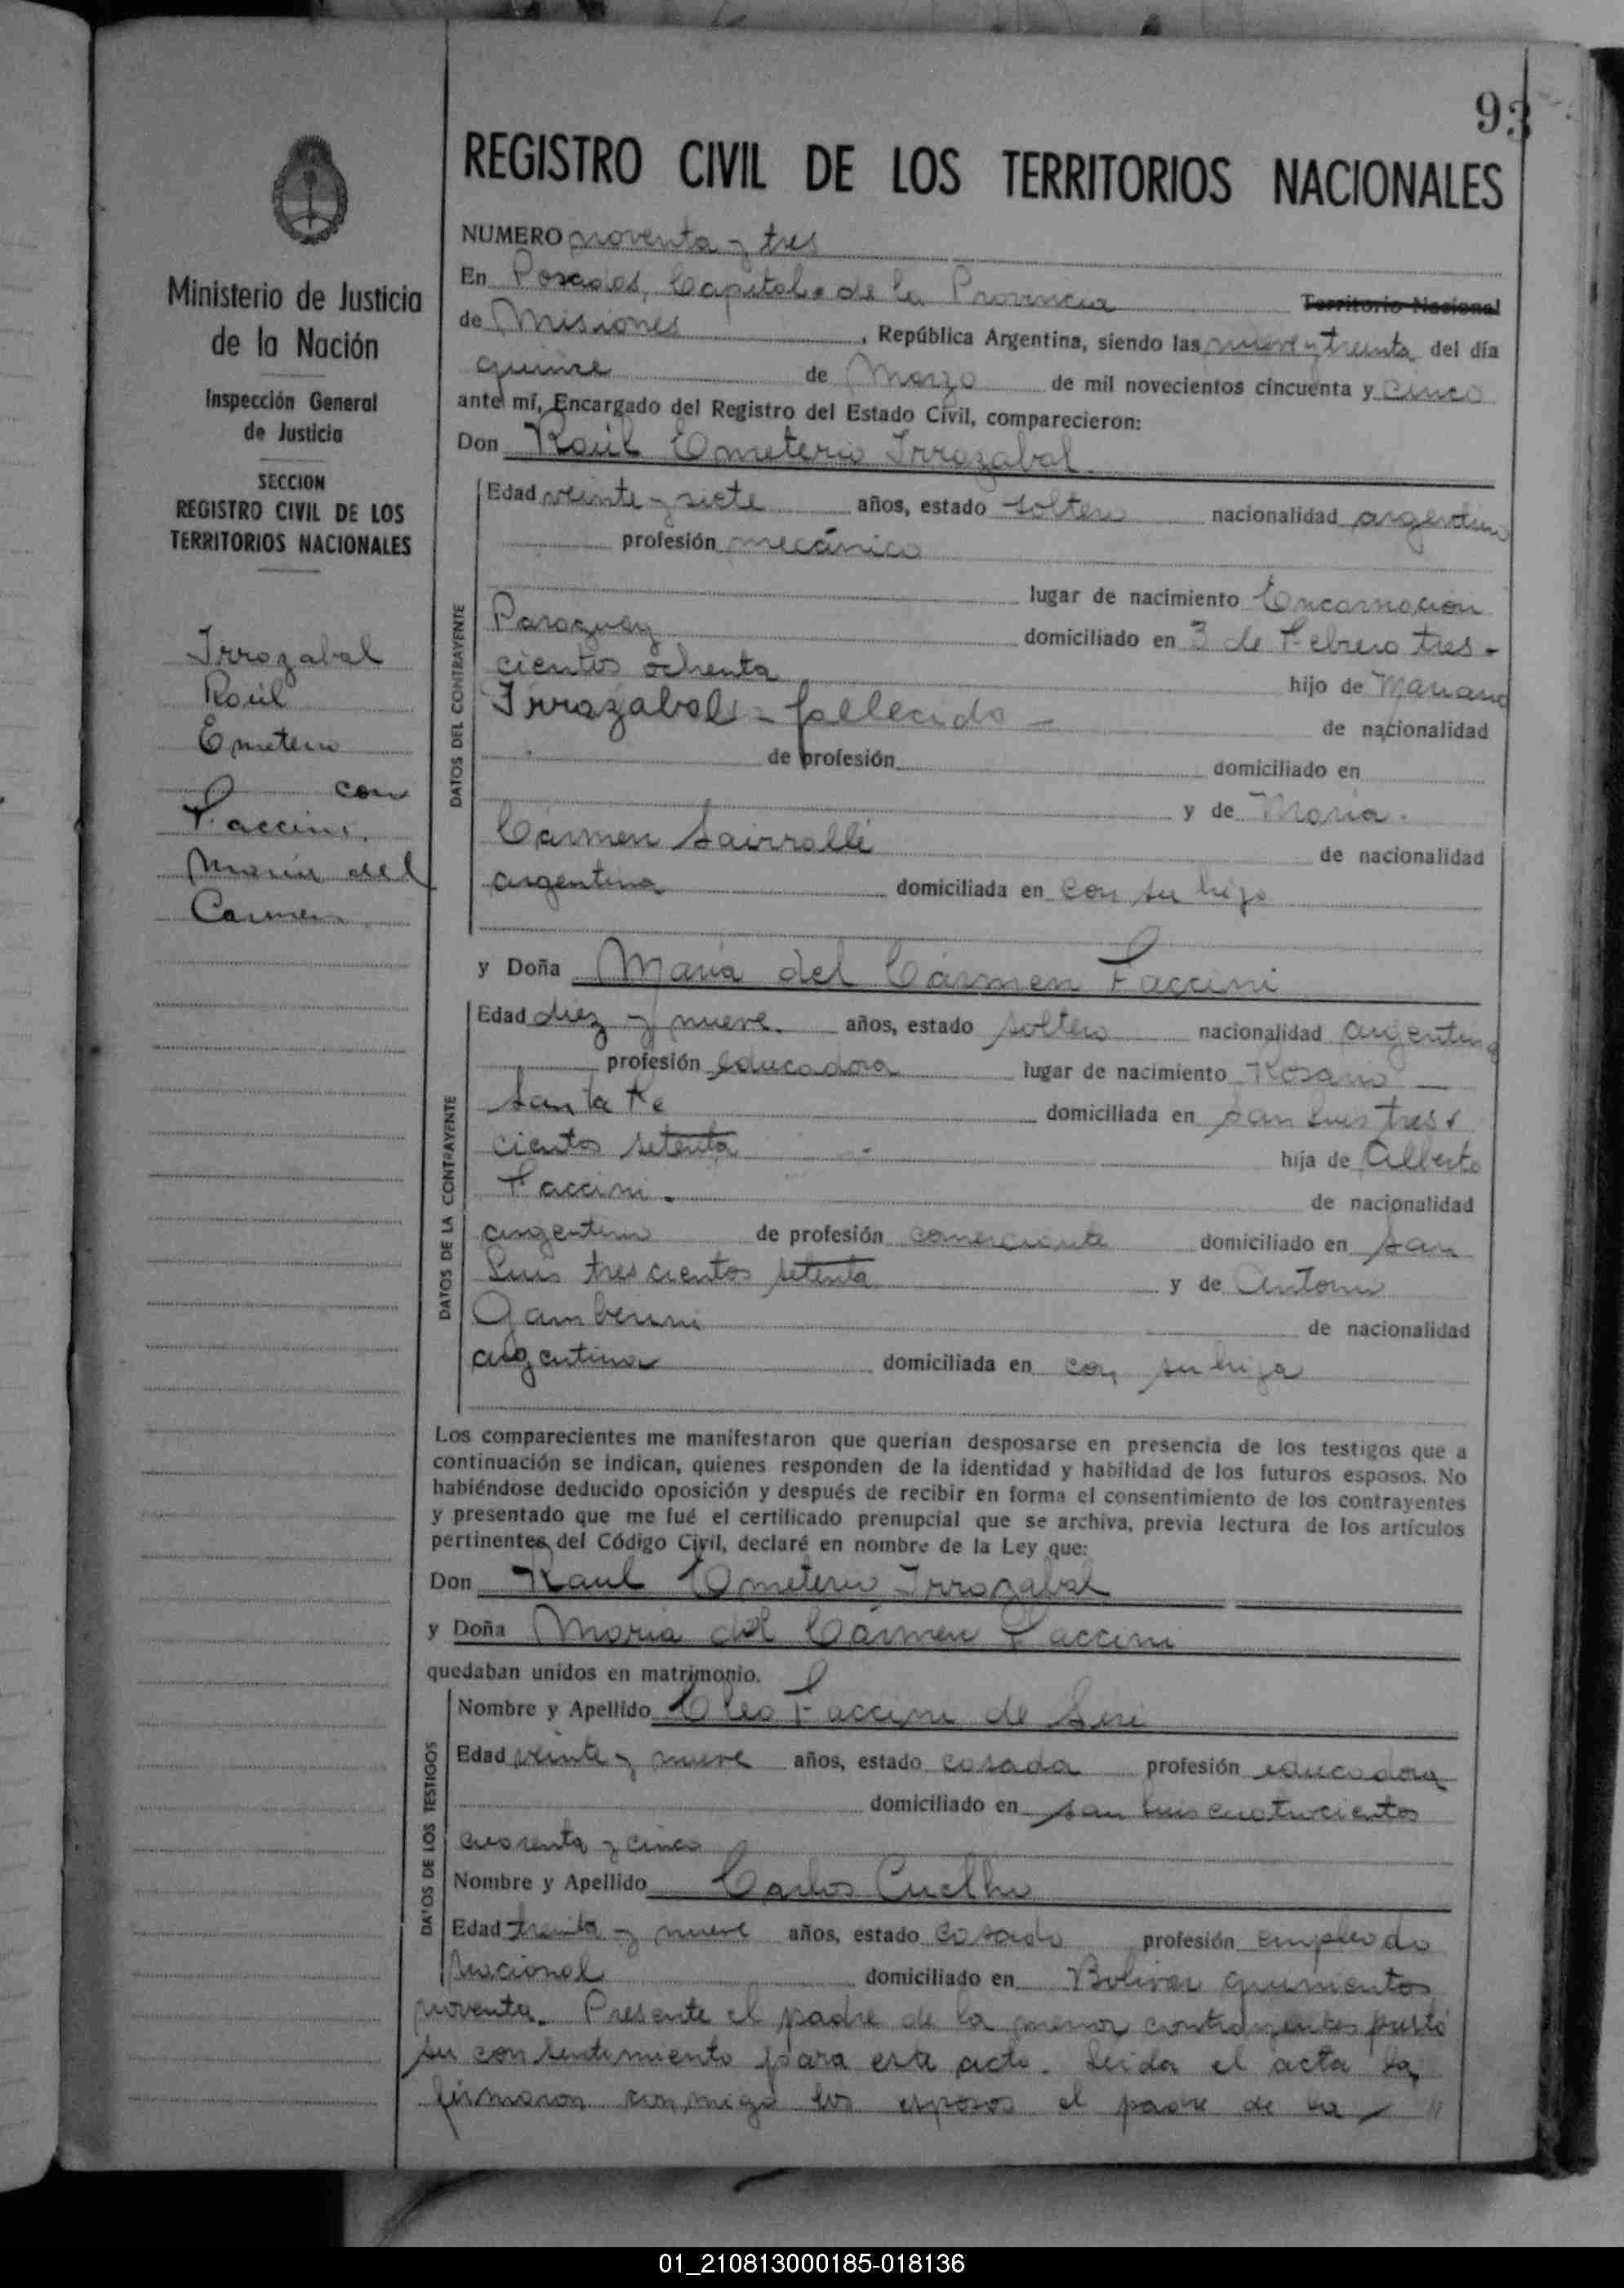 93
REGISTRO CIVIL DE LOS TERRITORIOS NACIONALES
Ministerio de Justicia
de la Nación
Inspección General
de Justicia
SECCION
REGISTRO CIVIL DE LOS
TERRITORIOS NACIONALES
Irrazabal
Raúl
Emeterio
con
Faccini
María del
Carmen
NUMERO noventa y tres
En Posadas, Capital de la Provincia Territorio Nacional
de Misiones, República Argentina, siendo las nueve y treinta del día
quince de Marzo de mil novecientos cincuenta y cinco
ante mí, Encargado del Registro del Estado Civil, comparecieron:
Don Raúl Emeterio Irrazabal
DATOS DEL CONTRAYENTE
Edad veinte y siete años, estado soltero nacionalidad argentino
profesión mecánico
lugar de nacimiento Encarnación
Paraguay domiciliado en 3 de Febrero tres-
cientos ochenta hijo de Mariano
Irrazabal - fallecido - de nacionalidad
de profesión domiciliado en
y de María
Cármen de nacionalidad
argentina domiciliada en con su hijo
y Doña María del Cármen Faccini
DATOS DE LA CONTRAYENTE
Edad diez y nueve años, estado soltera nacionalidad argentina
profesión educadora lugar de nacimiento Rosario
Santa Fe domiciliada en San Luis tres
cientos setenta hija de Alberto
Faccini de nacionalidad
argentino de profesión comerciante domiciliado en San
Luis trescientos setenta y de Antonia
Gamberini de nacionalidad
argentina domiciliada en con su hija
Los comparecientes me manifestaron que querían desposarse en presencia de los testigos que a
continuación se indican, quienes responden de la identidad y habilidad de los futuros esposos. No
habiéndose deducido oposición y después de recibir en forma el consentimiento de los contrayentes
y presentado que me fué el certificado prenupcial que se archiva, previa lectura de los artículos
pertinentes del Código Civil, declaré en nombre de la Ley que:
Don Raul Emeterio Irrazabal
y Doña María del Cármen Faccini
quedaban unidos en matrimonio.
DATOS DE LOS TESTIGOS
Nombre y Apellido Cleo Faccini de
Edad veinte y nueve años, estado casada profesión educadora
domiciliado en San Luis cuatrocientos
cuarenta y cinco
Nombre y Apellido Carlos Cuelho
Edad treinta y nueve años, estado casado profesión empleado
Nacional domiciliado en Bolivar quinientos
noventa. Presente el padre de la menor contrayente prestó
su consentimiento para este acto. Leida el acta la
firmaron conmigo los esposos el padre de la
01_210813000185-018136